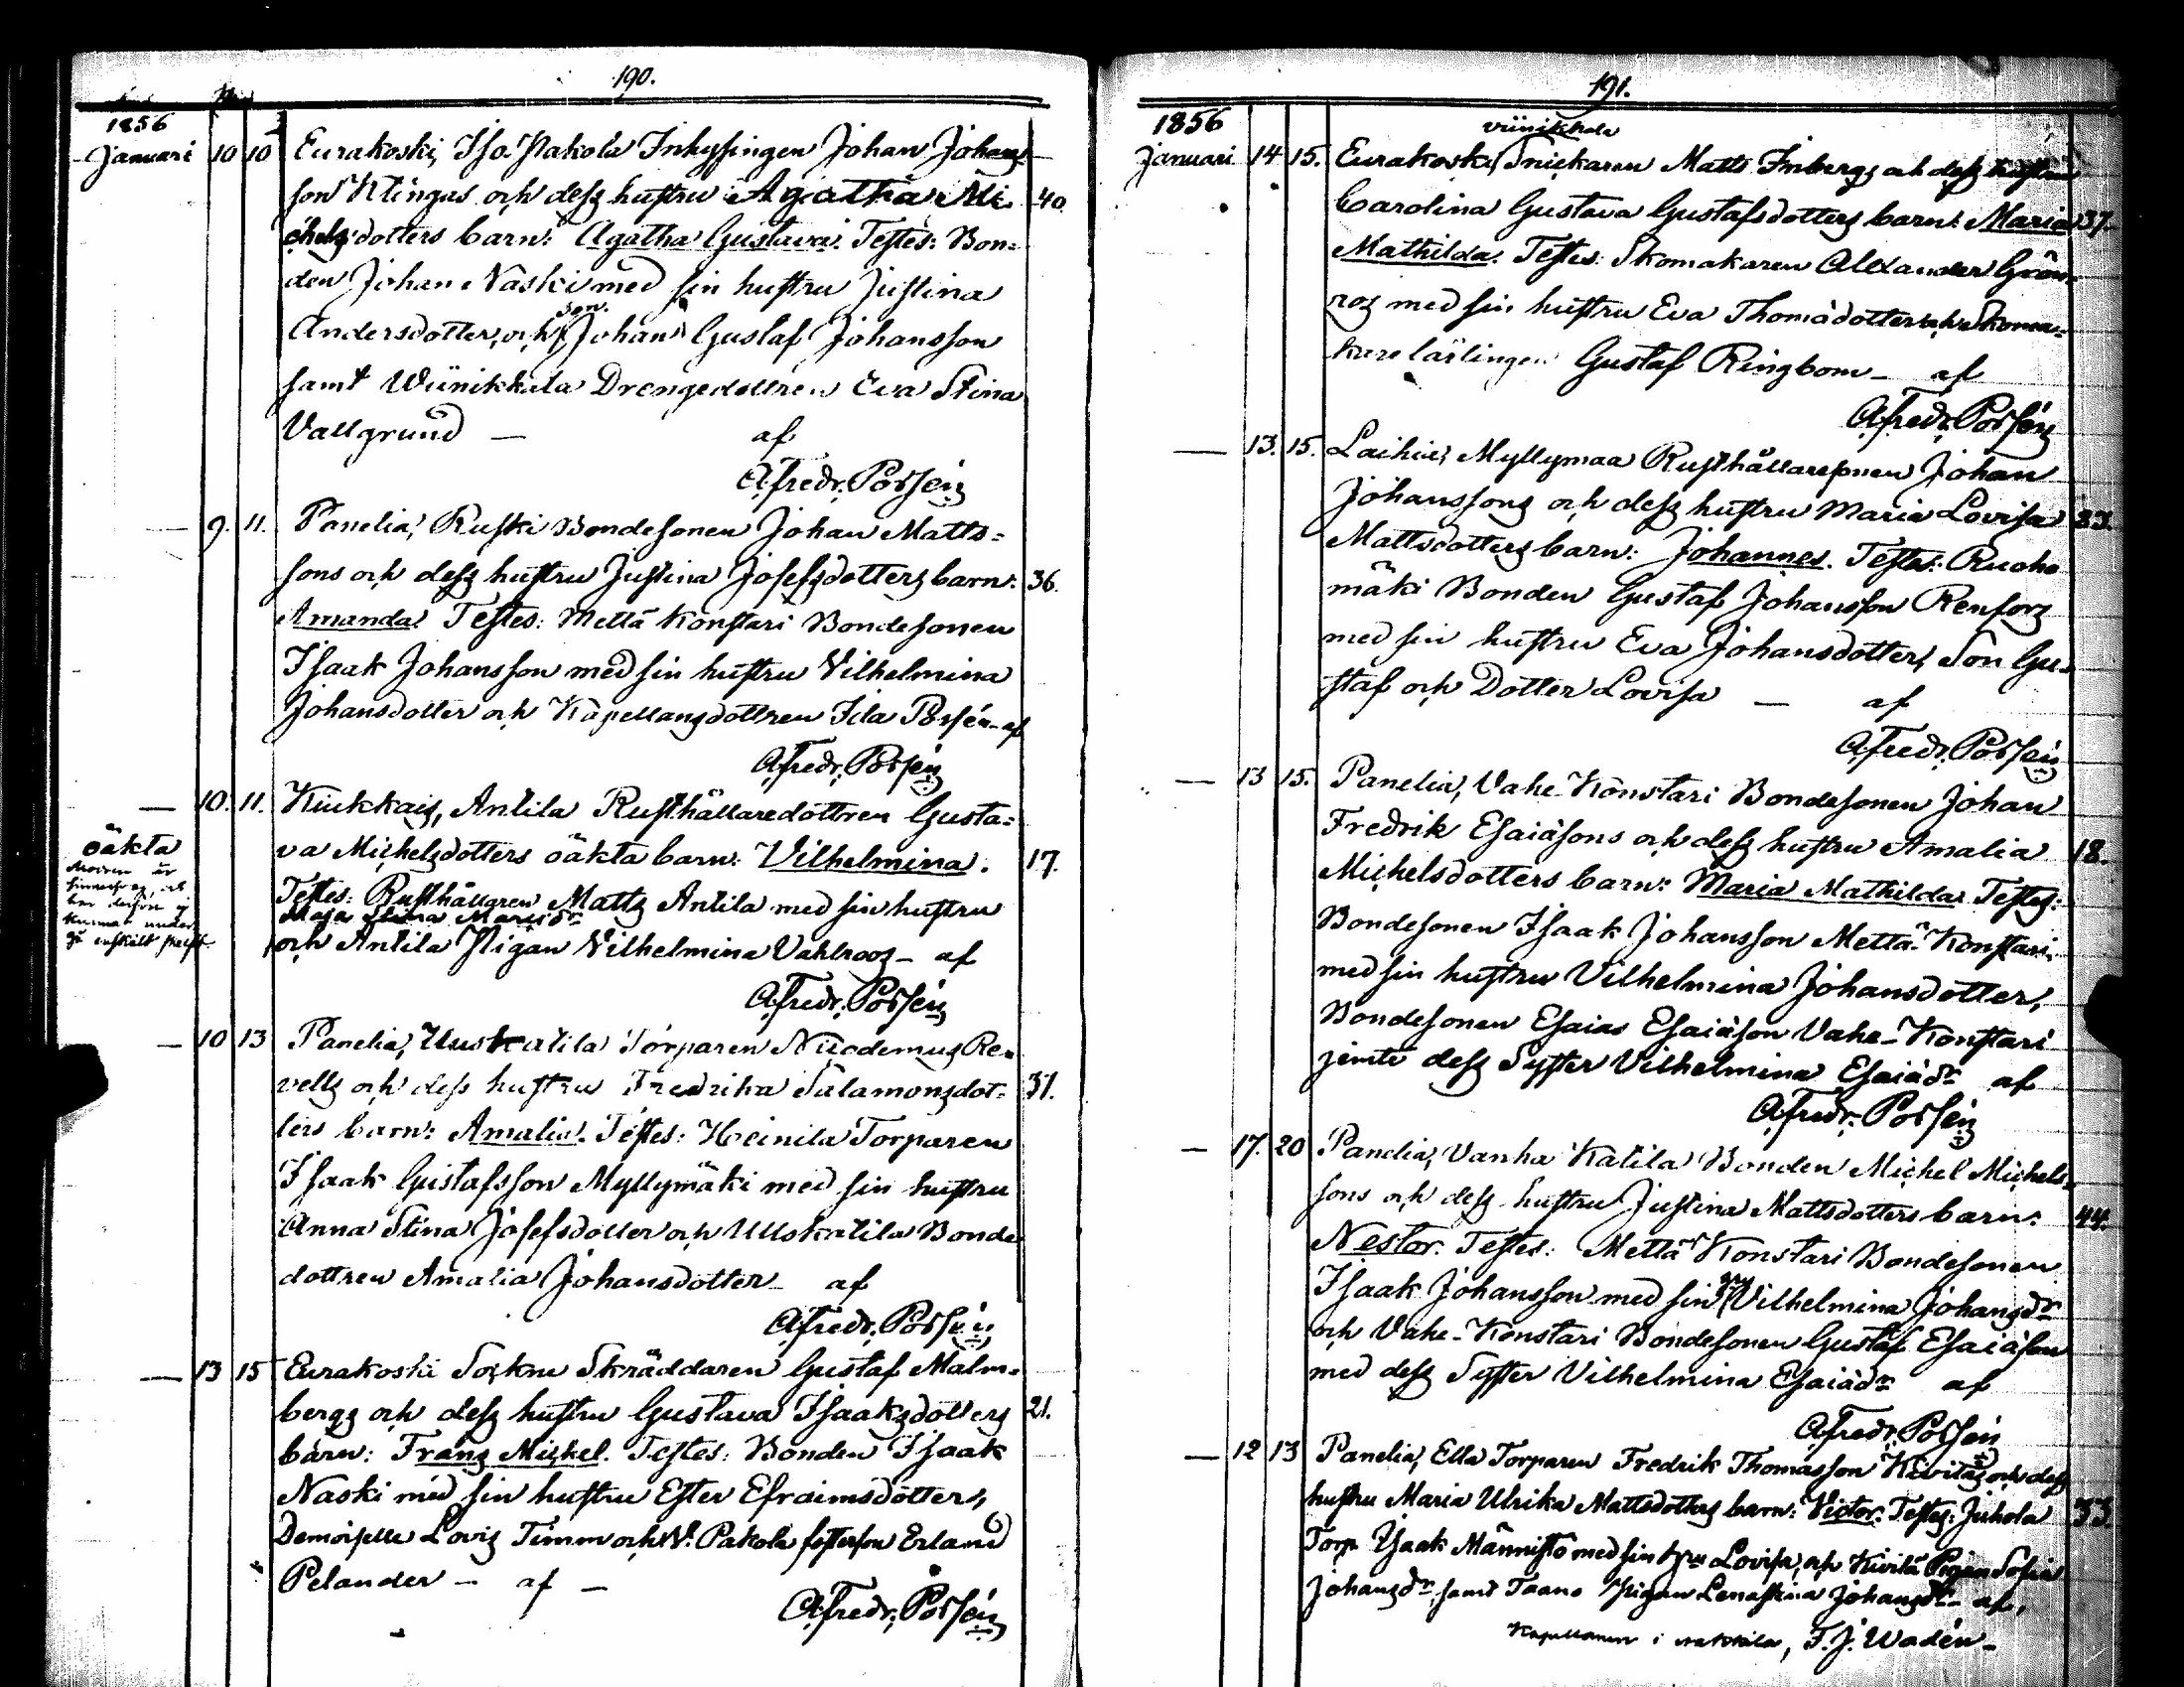 190.
1856
Januari 10 10 Eurakoski, Iso Pakola Inhysingen Johan Johans-
son Klingas och dess hustru Agatha Mi- 40.
chelsdotters barn: Agatha Gustava. Testes: Bon-
den Johan Naski med sin hustru Justina
Andersdotter, och son Johan Gustaf Johansson
samt Wiinikkala Drengedottren Eva Stina
Vallgrund — af
A. Fredr. Porsén
— 9. 11. Panelia, Ruski Bondesonen Johan Matts-
sons och dess hustru Justina Josefsdotters barn: 36.
Amanda. Testes: Mettä Konstari Bondesonen
Isaak Johansson med sin hustru Vilhelmina
Johansdotter och Kapellansdottren Ida Porsén – af
A. Fredr. Porsén
— 10. 11. Kiukkais, Antila Rusthållaredottren Gusta-
oäkta va Michelsdotters oäkta barn: Vilhelmina. 17.
Modren är
Testes: Rusthållaren Matts Antila med sin hustru
Maja Stina Matsdr
och Antila Pigan Vilhelmina Vahlroos – af
A. Fredr. Porsén
— 10 13 Panelia, Uuskatila Torparen Nicodemus Re-
vells och dess hustru Fredrika Salamonsdot- 31.
ters barn: Amalia. Testes: Heinila Torparen
Isaak Gustafsson Myllymäki med sin hustru
Anna Stina Josefsdotter och Uuskatila Bonde
dottren Amalia Johansdotter – af
A. Fredr. Porsén
— 13 15 Eurakoski Sockne Skräddaren Gustaf Malm-
bergs och dess hustru Gustava Isaaksdotters 21.
barn: Frans Michel. Testes: Bonden Isaak
Naski med sin hustru Ester Efraimsdotter,
Demoiselle Lovis Timm och W. Pakola fosterson Erland
Pelander – af –
A. Fredr. Porsén
191.
1856 viinikkala
Januari 14 15. Eurakoski, Snickaren Matts Inbergs och dess hustru
Carolina Gustava Gustafsdotters barn: Maria 37.
Mathilda. Testes: Skomakaren Alexander Grön-
ros med sin hustru Eva Thomädotter och Skoma-
kare lärlingen Gustaf Ringbom – af
A. Fredr. Porsén
— 13. 15. Laihia, Myllymaa Rusthållaresonen Johan
Johanssons och dess hustru Maria Lovisa 23.
Mattsdotters barn: Johannes. Testes: Ruoho
mäki Bonden Gustaf Johansson Renfors
med sin hustru Eva Johansdotter, Son Gu-
staf och Dotter Lovisa — af
A. Fredr. Porsén
— 13 15. Panelia, Vahe-Konstari Bondesonen Johan
Fredrik Esaiäsons och dess hustru Amalia 18.
Michelsdotters barn: Maria Mathilda. Testes:
Bondesonen Isaak Johansson Mettä-Konstari
med sin hustru Vilhelmina Johansdotter,
Bondesonen Esaias Esaiäson Vahe-Konstari
jemte dess Syster Vilhelmina Esaiädr af
A. Fredr. Porsén
— 17. 20 Panelia, Vanha Katila Bonden Michel Michels-
sons och dess hustru Justina Mattsdotters barn: 44.
Nestor. Testes: Mettä Konstari Bondesonen
Isaak Johansson med sin Vilhelmina Johansdr
och Vahe-Konstari Bondesonen Gustaf Esaiäson
med dess Syster Vilhelmina Esaiädr af
A. Fredr. Porsén
— 12 13 Panelia, Ella Torparen Fredrik Thomasson Kivitäs och dess
hustru Maria Ulrika Mattsdotters barn: Victor. Testes: Juhola 33.
Torp. Isaak Männistö med sin hru Lovisa, och Kivitä Pigan Sofia
Johansdr, samt Taano Pigan Lenastina Johansdr – af,
Kapellanen i Nakkila, F. J. Wadén –